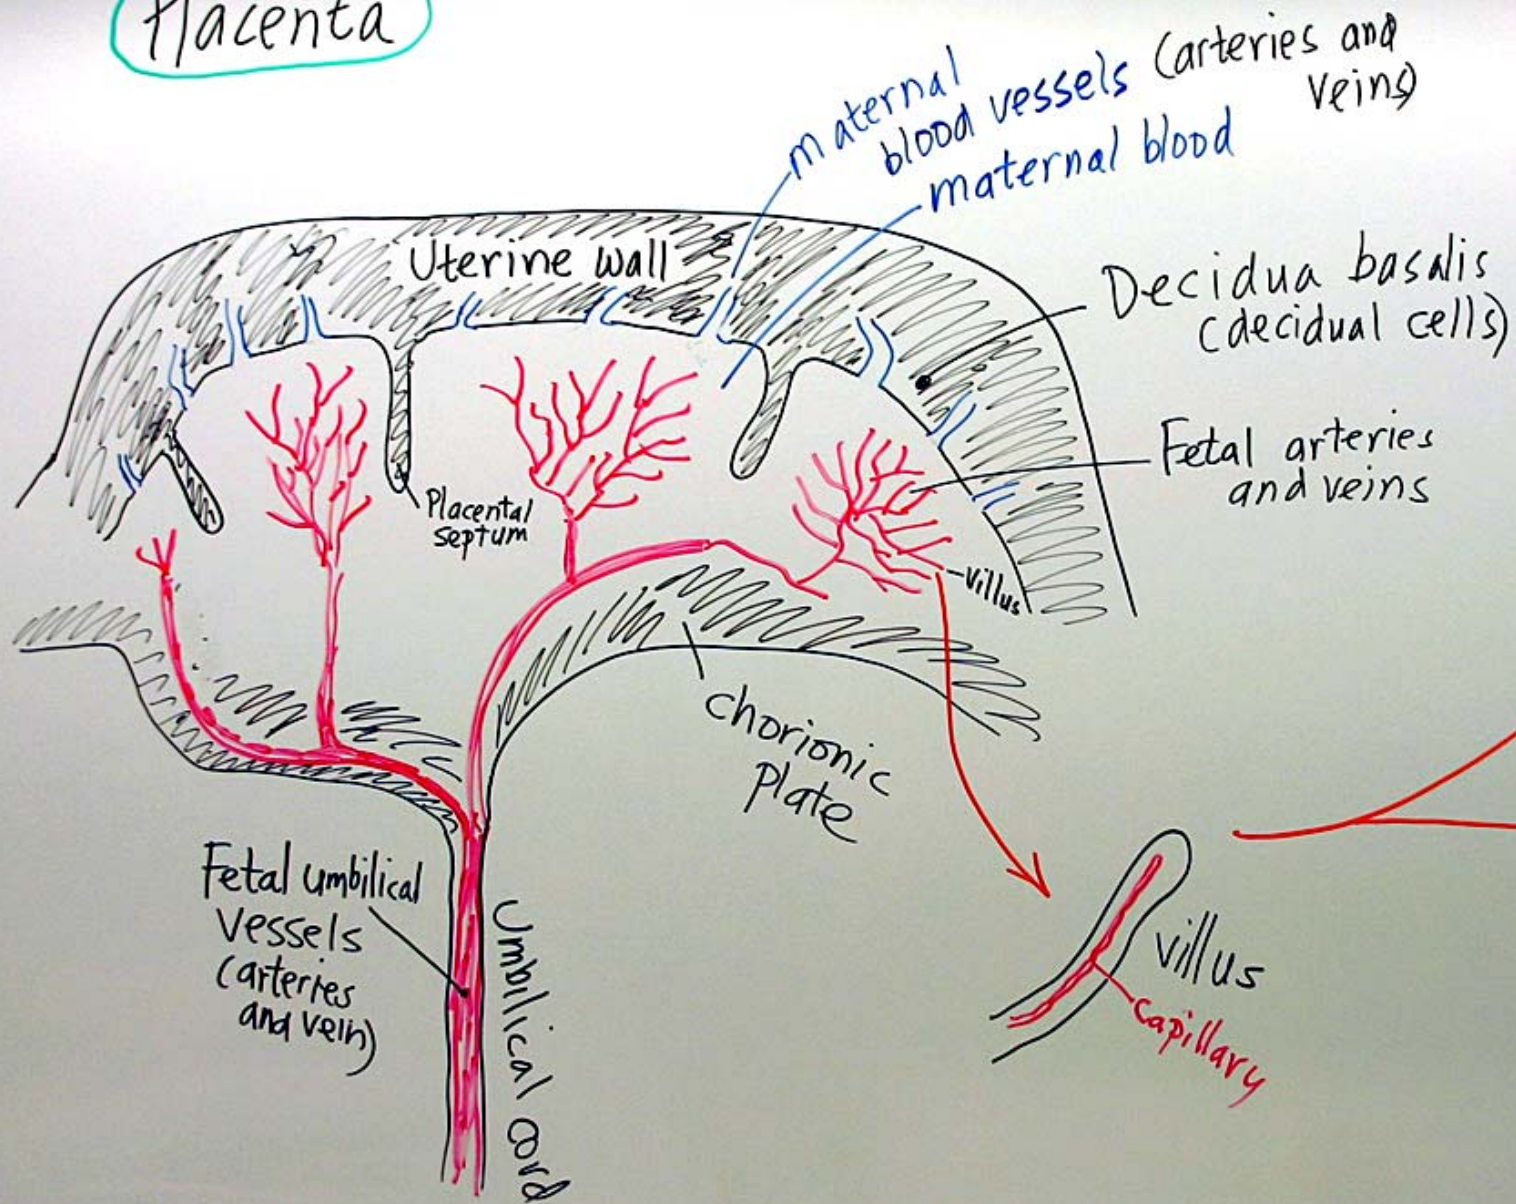 Placenta
maternal
blood vessels (arteries and
veins)
maternal blood
Uterine wall
Decidua basalis
(decidual cells)
Fetal arteries
and veins
Placental
septum
villus
chorionic
plate
Fetal umbilical
vessels
(arteries
and vein)
Umbilical cord
villus
capillary